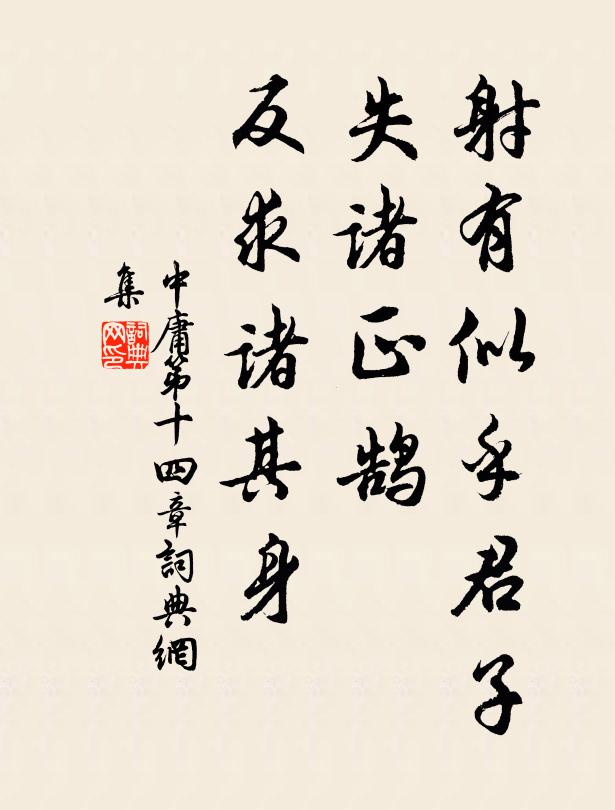 射有似乎君子
失诸正鹄
反求诸其身
中庸第十四章詞典網
集
詞典
网印